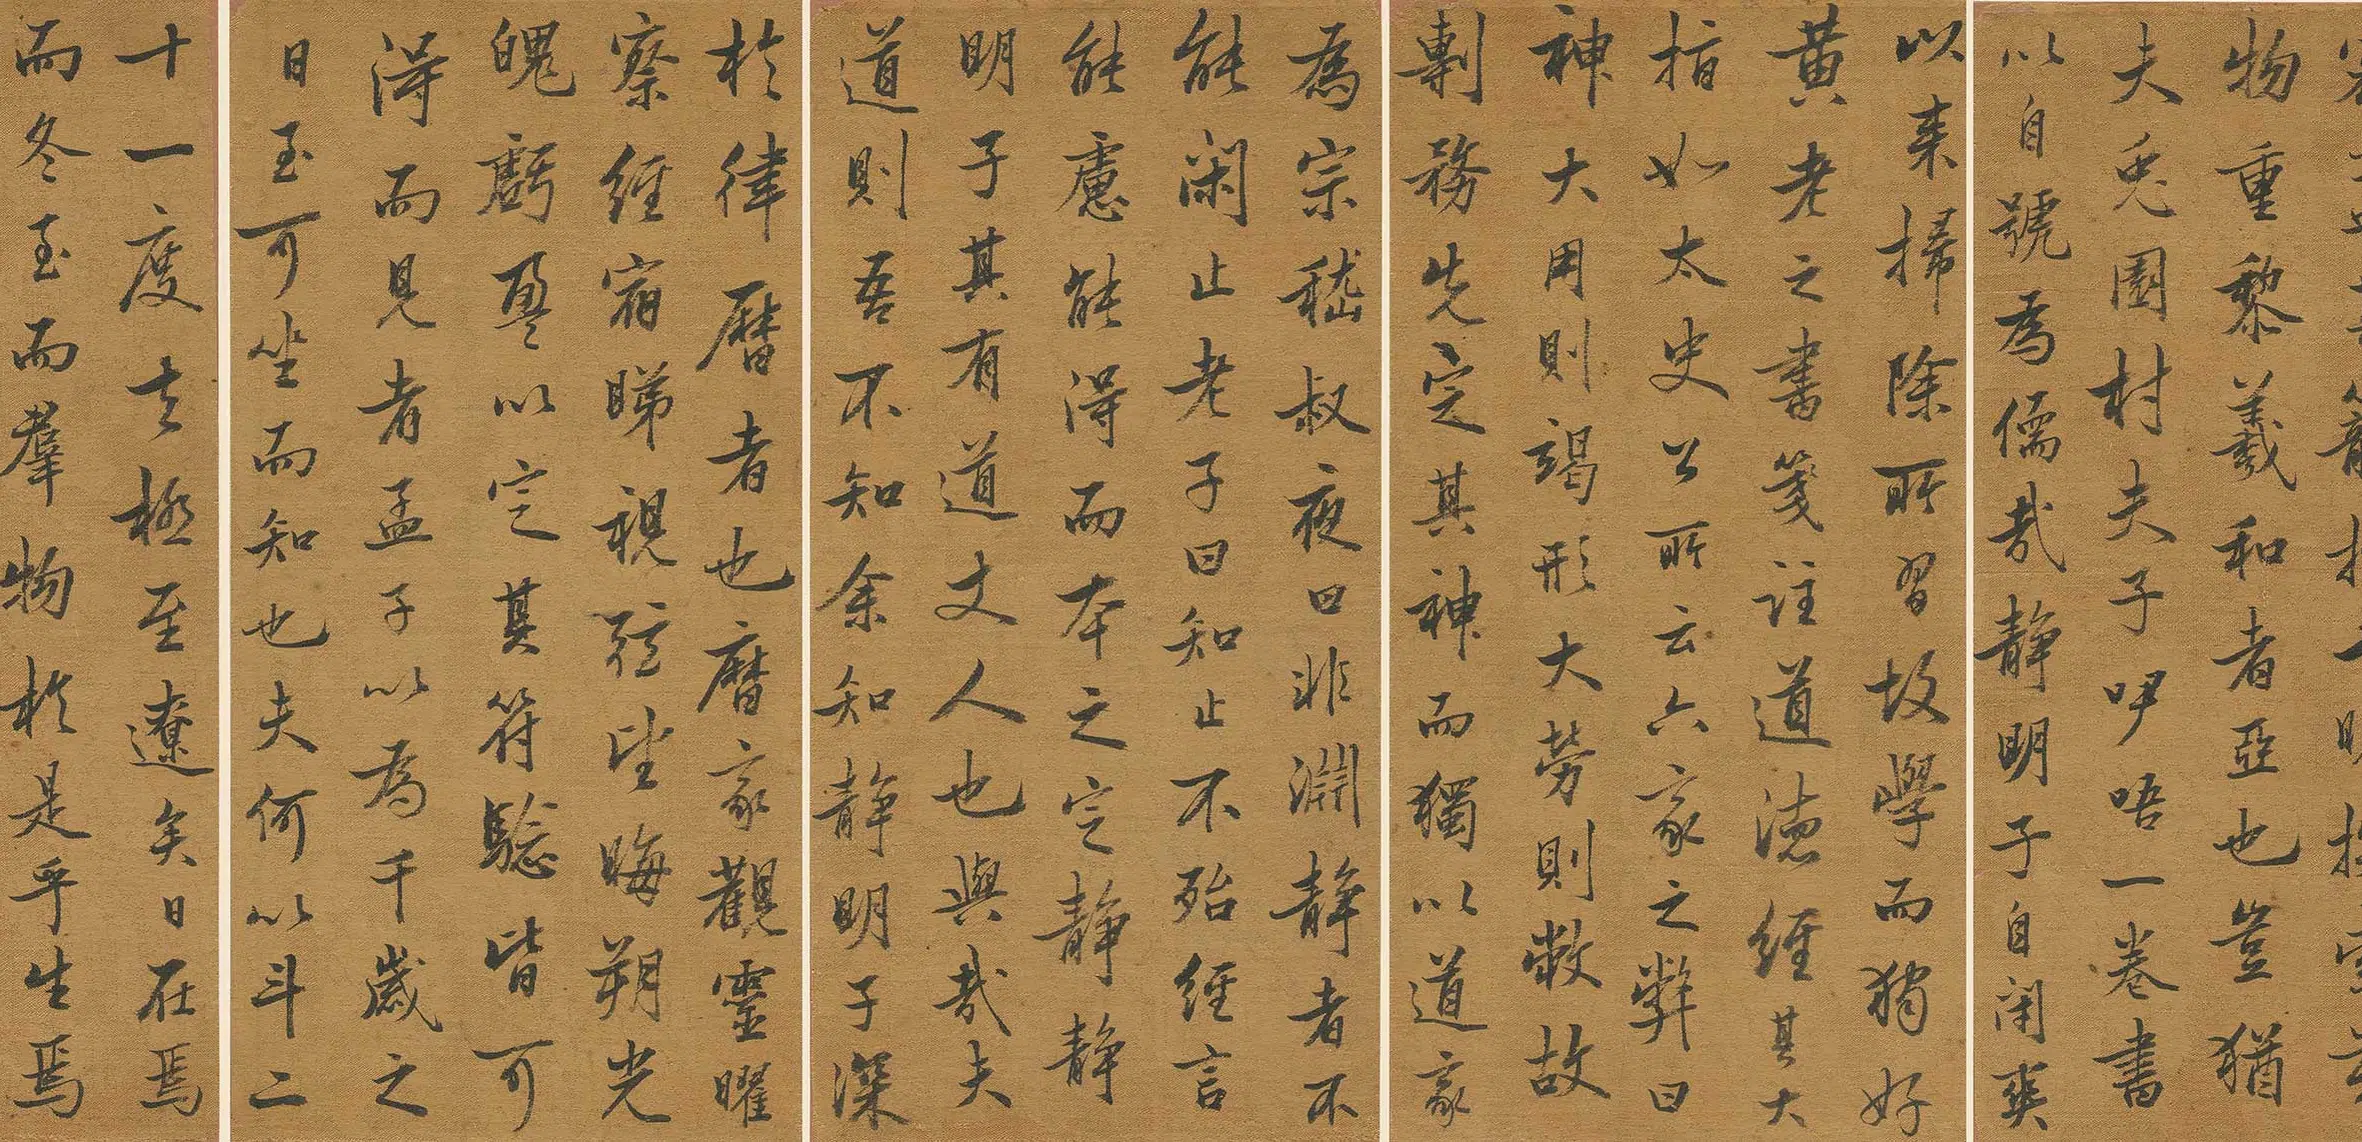 物重黎羲和者亞也豈猶
夫兎園村夫子呻唔一卷書
以自號為儒哉靜明子自閑
以来掃除所習故學而獨好
黃老之書箋註道德經其大
指如太史公所云六家之弊曰
神大用則竭形大勞則敝故
剸務先定其神而獨以道家
為宗嵇叔夜曰非淵靜者不
能閑止老子曰知止不殆經言
能慮能得而本之定靜靜
明子其有道丈人也與哉夫
道則吾不知余知靜明子深
於律曆者也曆家觀靈曜
察經宿睇視弦望晦朔光
魄虧盈以定其符驗皆可
得而見者孟子以為千歲之
日至可坐而知也夫何以斗二
十一度去極至遼矣日在焉
而冬至而羣物於是乎生焉